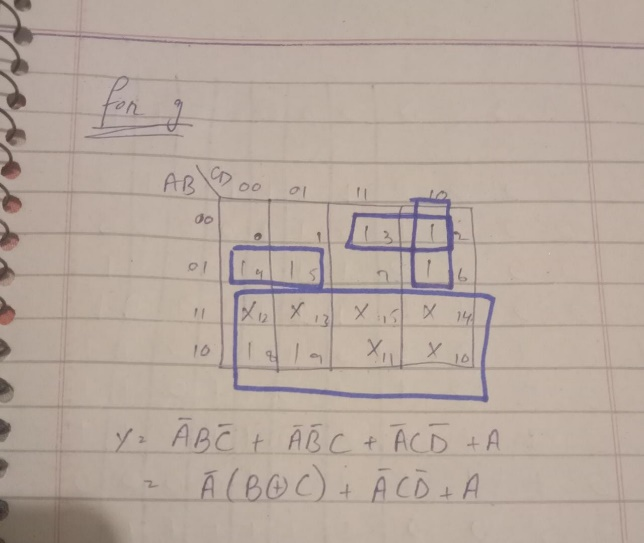 for g
AB CD 00 01 11 10
00 0 1 1 3 1 2
01 1 4 1 5 7 1 6
11 X 12 X 13 X 15 X 14
10 1 8 1 9 X 11 X 10
Y = A̅BC̅ + A̅B̅C + A̅CD̅ + A
= A̅(B⊕C) + A̅CD̅ + A